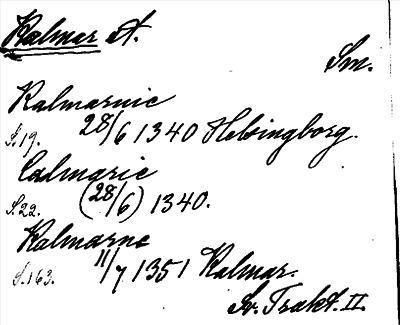 Kalmar st.
Sm.
Kalmarnie
S.19. 28/6 1340 Helsingborg.
Calmarie
S.22. (28/6) 1340.
Kalmarne
S.163. 11/7 1351 Kalmar.
Sv. Trakt. II.